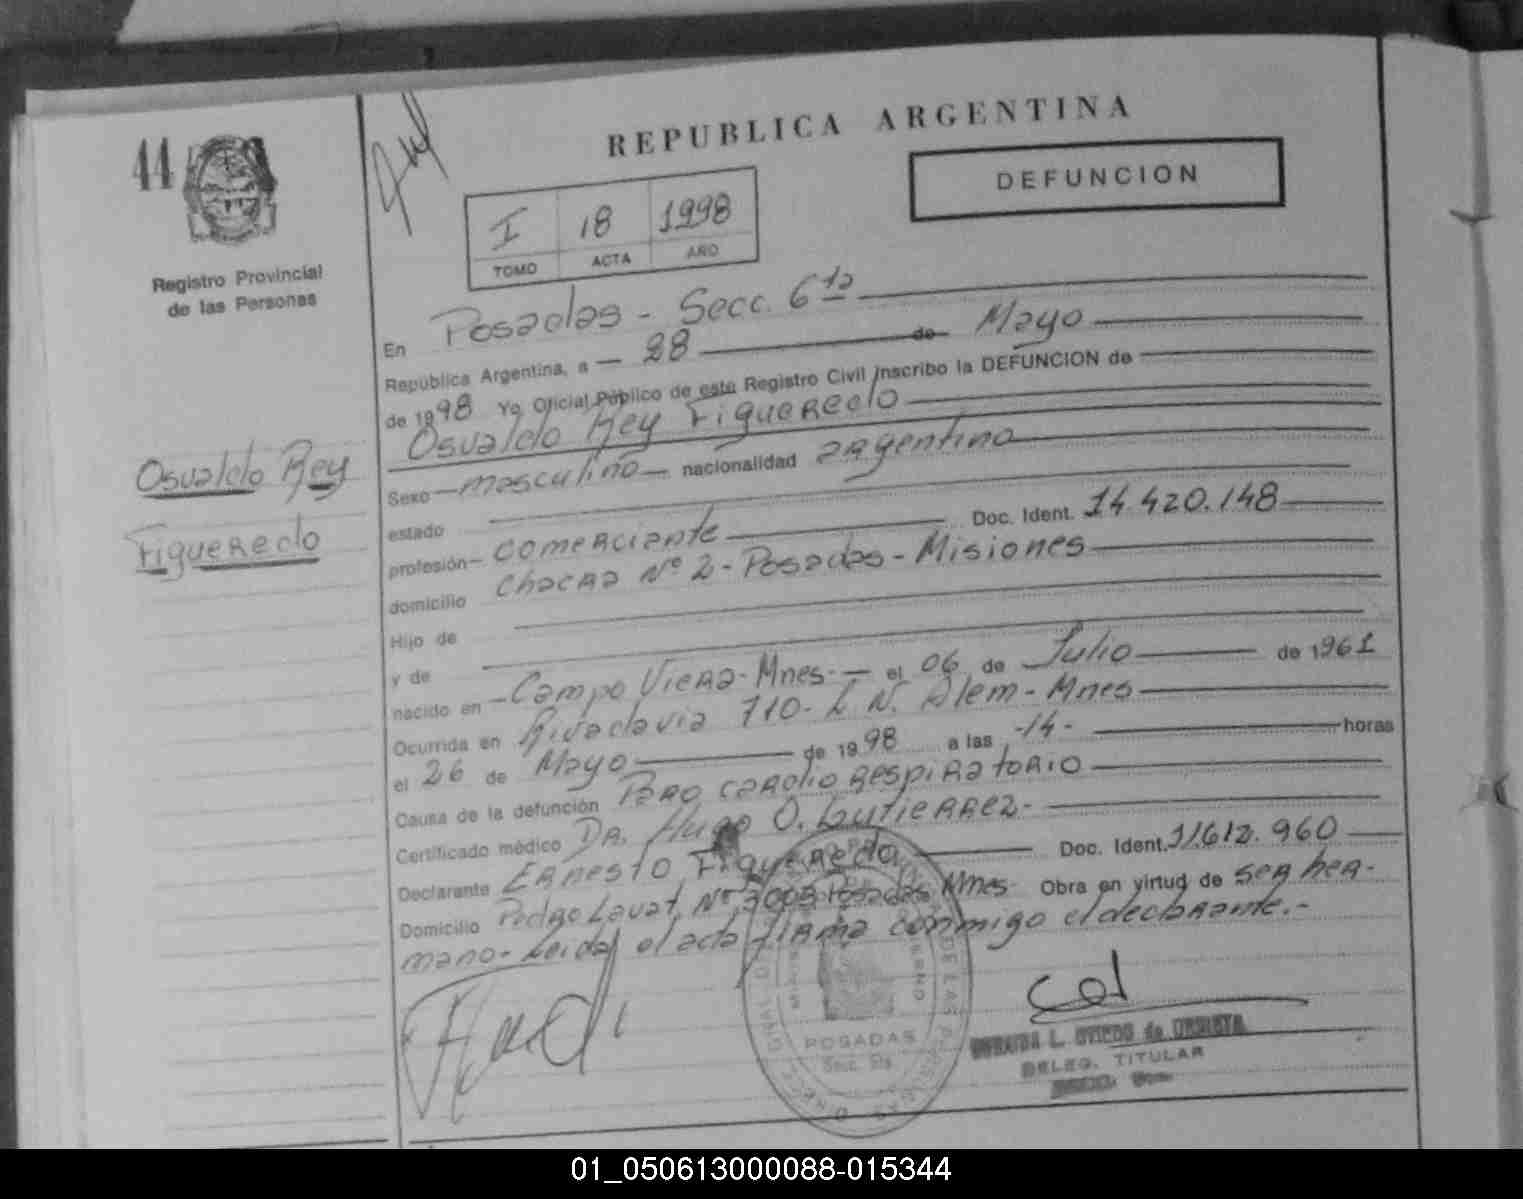 44
REPUBLICA ARGENTINA
DEFUNCION
I 18 1998
TOMO ACTA AÑO
Registro Provincial
de las Personas
En Posadas - Secc. 6ta
República Argentina, a - 28 de Mayo
de 1998 Yo, Oficial Público de este Registro Civil inscribo la DEFUNCION de
Osvaldo Rey Figueredo
Osvaldo Rey
Figueredo
Sexo masculino nacionalidad argentino
estado
profesión comerciante Doc. Ident. 14.420.148
domicilio Chacra Nº 2 - Posadas - Misiones
Hijo de
y de
nacido en Campo Viera - Mnes - el 06 de Julio de 1961
Ocurrida en Rivadavia 710 - L. N. Alem - Mnes
el 26 de Mayo de 1998 a las -14- horas
Causa de la defunción Paro cardio respiratorio
Certificado médico Dr. Hugo O. Gutierrez -
Declarante Ernesto Figueredo Doc. Ident. 11.612.960
Domicilio Posadas Mnes Obra en virtud de ser her-
mano - Leida el acta firma conmigo el declarante.-
POSADAS
DELEG. TITULAR
01_050613000088-015344